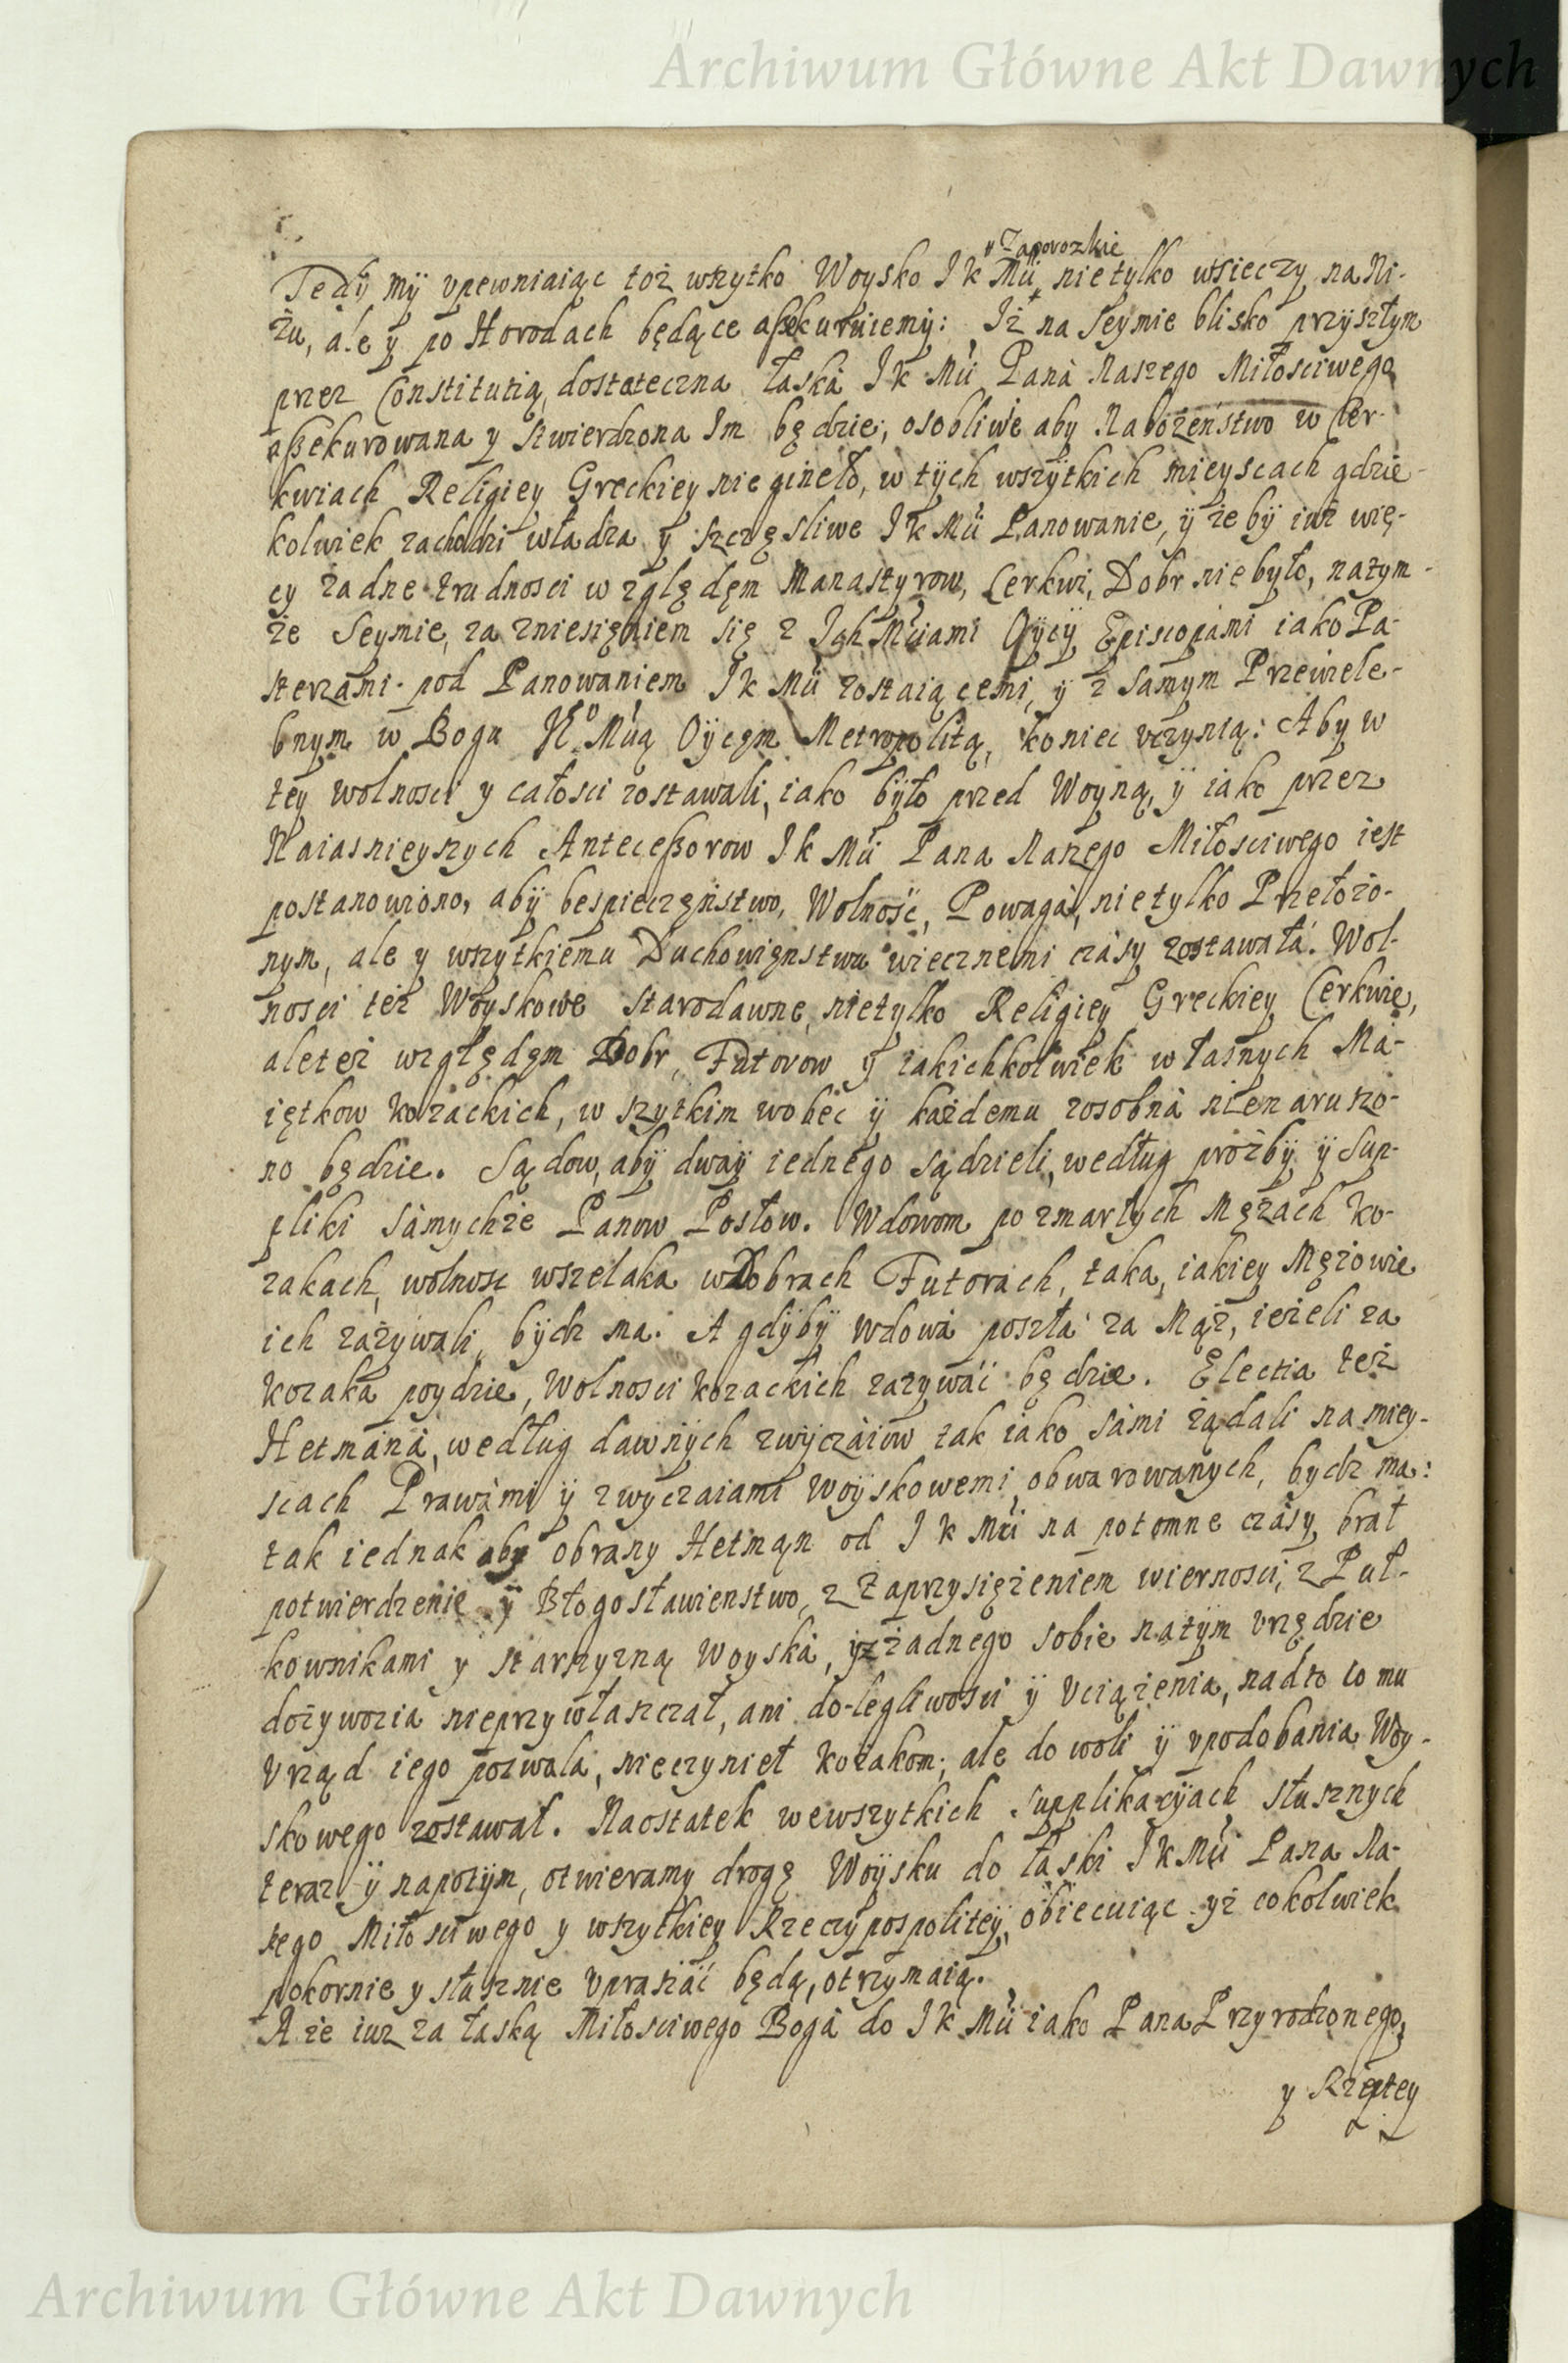 Archiwum Główne Akt Dawnych
y Zaporozkie
Tedÿ mÿ vpewniaiąc toż wszytko Woysko I K Mći nietylko wsieczy na Ni-
żu, ale y po Horodach będące assekuruiemÿ: Iż na Seymie blisko przyszłym
przez Constitutią dostateczna łaska I K Mći Pana Naszego Miłosciwego
assekurowana y stwierdzona Im będzie, osobliwie aby Nabożeństwo w Cer-
kwiach Religiey Greckiey nie gineło, w tÿch wszÿtkich mieyscach gdzie-
kolwiek zachodzi władza y szczęsliwe I K Mći Panowanie, ÿ żebÿ iuż wię-
cy żadne trudnosci względęm Manastyrow, Cerkwi, Dobr niebyło, natym-
że Seymie, za zniesięniem się z Ich Mćiami Oÿcÿ Episcopami iako Pa-
sterzami pod Panowaniem I K Mći zostaiącemi, ÿ z samym Przewiele-
bnym w Bogu Mćią Oÿcęm Metropolitą, koniec vczynią: Aby w
tey wolnosci y całosci zostawali, iako bÿło przed Woyną, ÿ iako przez
Naiasnieyszych Antecessorow I K Mći Pana Naszego Miłosciwego iest
postanowiono, abÿ bespieczęństwo, Wolność, Powaga, nietylko Przełożo-
nym, ale y wszytkiemu Duchowięnstwu wiecznemi czasy zostawała. Wol-
nosci też Woyskowe starodawne, nietylko Religiey Greckiey Cerkwie,
aleteż względęm Dobr, Futorow ÿ iakichkolwiek własnych Ma-
iętkow kozackich, wszytkim wobec ÿ każdemu zosobna nienaruszo-
no będzie. Sądow, abÿ dwaÿ iednego sądzieli, według proźbÿ ÿ Sup-
pliki samychże Panow Posłow. Wdowom po zmarłych Mężach Ko-
zakach, wolnosc wszelaka w Dobrach Futorach, taka, iakiey Mężowie
ich zażywali, bÿdz ma. A gdÿbÿ wdowa poszła za Mąż, ieżeli za
kozaka poydzie, wolnosci kozackich zazywać będzie. Electia też
Hetmana, według dawnÿch zwÿczaiow tak iako sami żądali na miey-
scach Prawami ÿ zwyczaiami woÿskowemi obwarowanych, bydz ma:
tak iednak aby obrany Hetmąn od I K Mći na potomne czasy brał
potwierdzenie ÿ Błogosławienstwo, z Zaprzysiężeniem wiernosci, z Puł-
kownikami y starszyzną Woyska, yż żadnego sobie natÿm vrzędzie
dożywocia nieprzywłaszczał, ani do-legliwosci ÿ Vciążenia, nadto co mu
Vrząd iego pozwala, nieczynieł kozakom; ale do woli ÿ vpodobania Woy-
skowego zostawał. Naostatek wewszytkich supplikacÿach słusznych
teraz ÿ napotÿm, otwieramy drogę Woÿsku do łaski I K Mći Pana Na-
szego Miłosciwego y wszytkiey Rzeczÿpospoliteÿ, obiecuiąc yż cokolwiek
pokornie y słusznie Vpraszać będą, otrzymaią.
A że iuz za łaską Miłosciwego Boga do I K Mći iako Pana Przyrodzonego,
y Rzeptey
Archiwum Główne Akt Dawnych